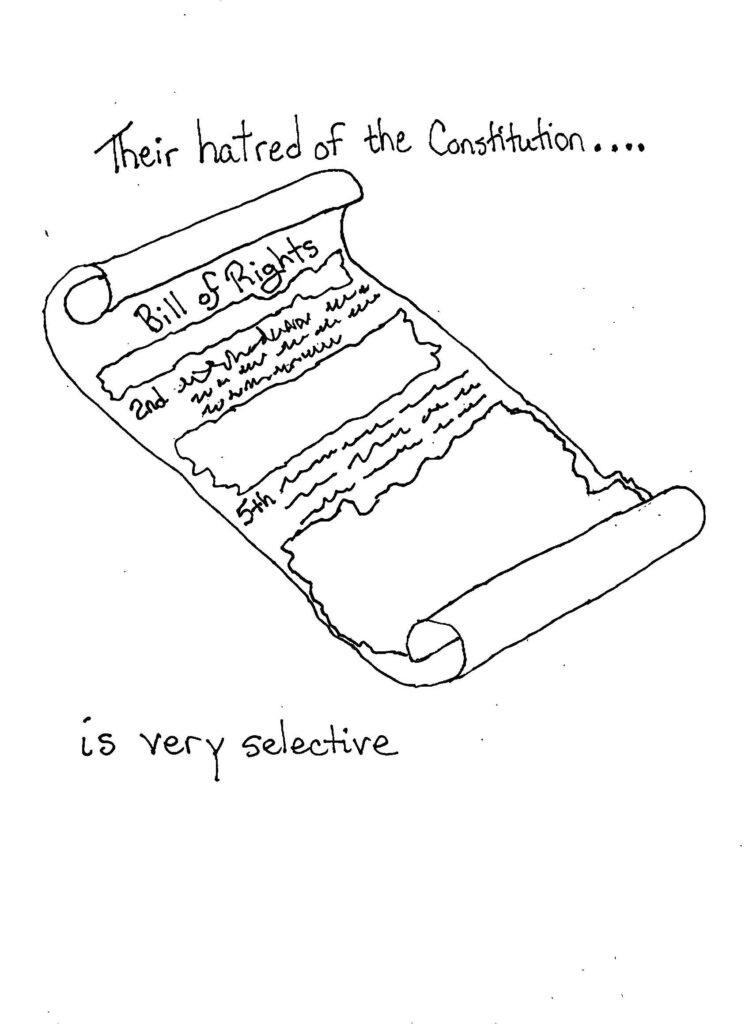 Their hatred of the Constitution....
Bill of Rights
2nd
5th
is very selective